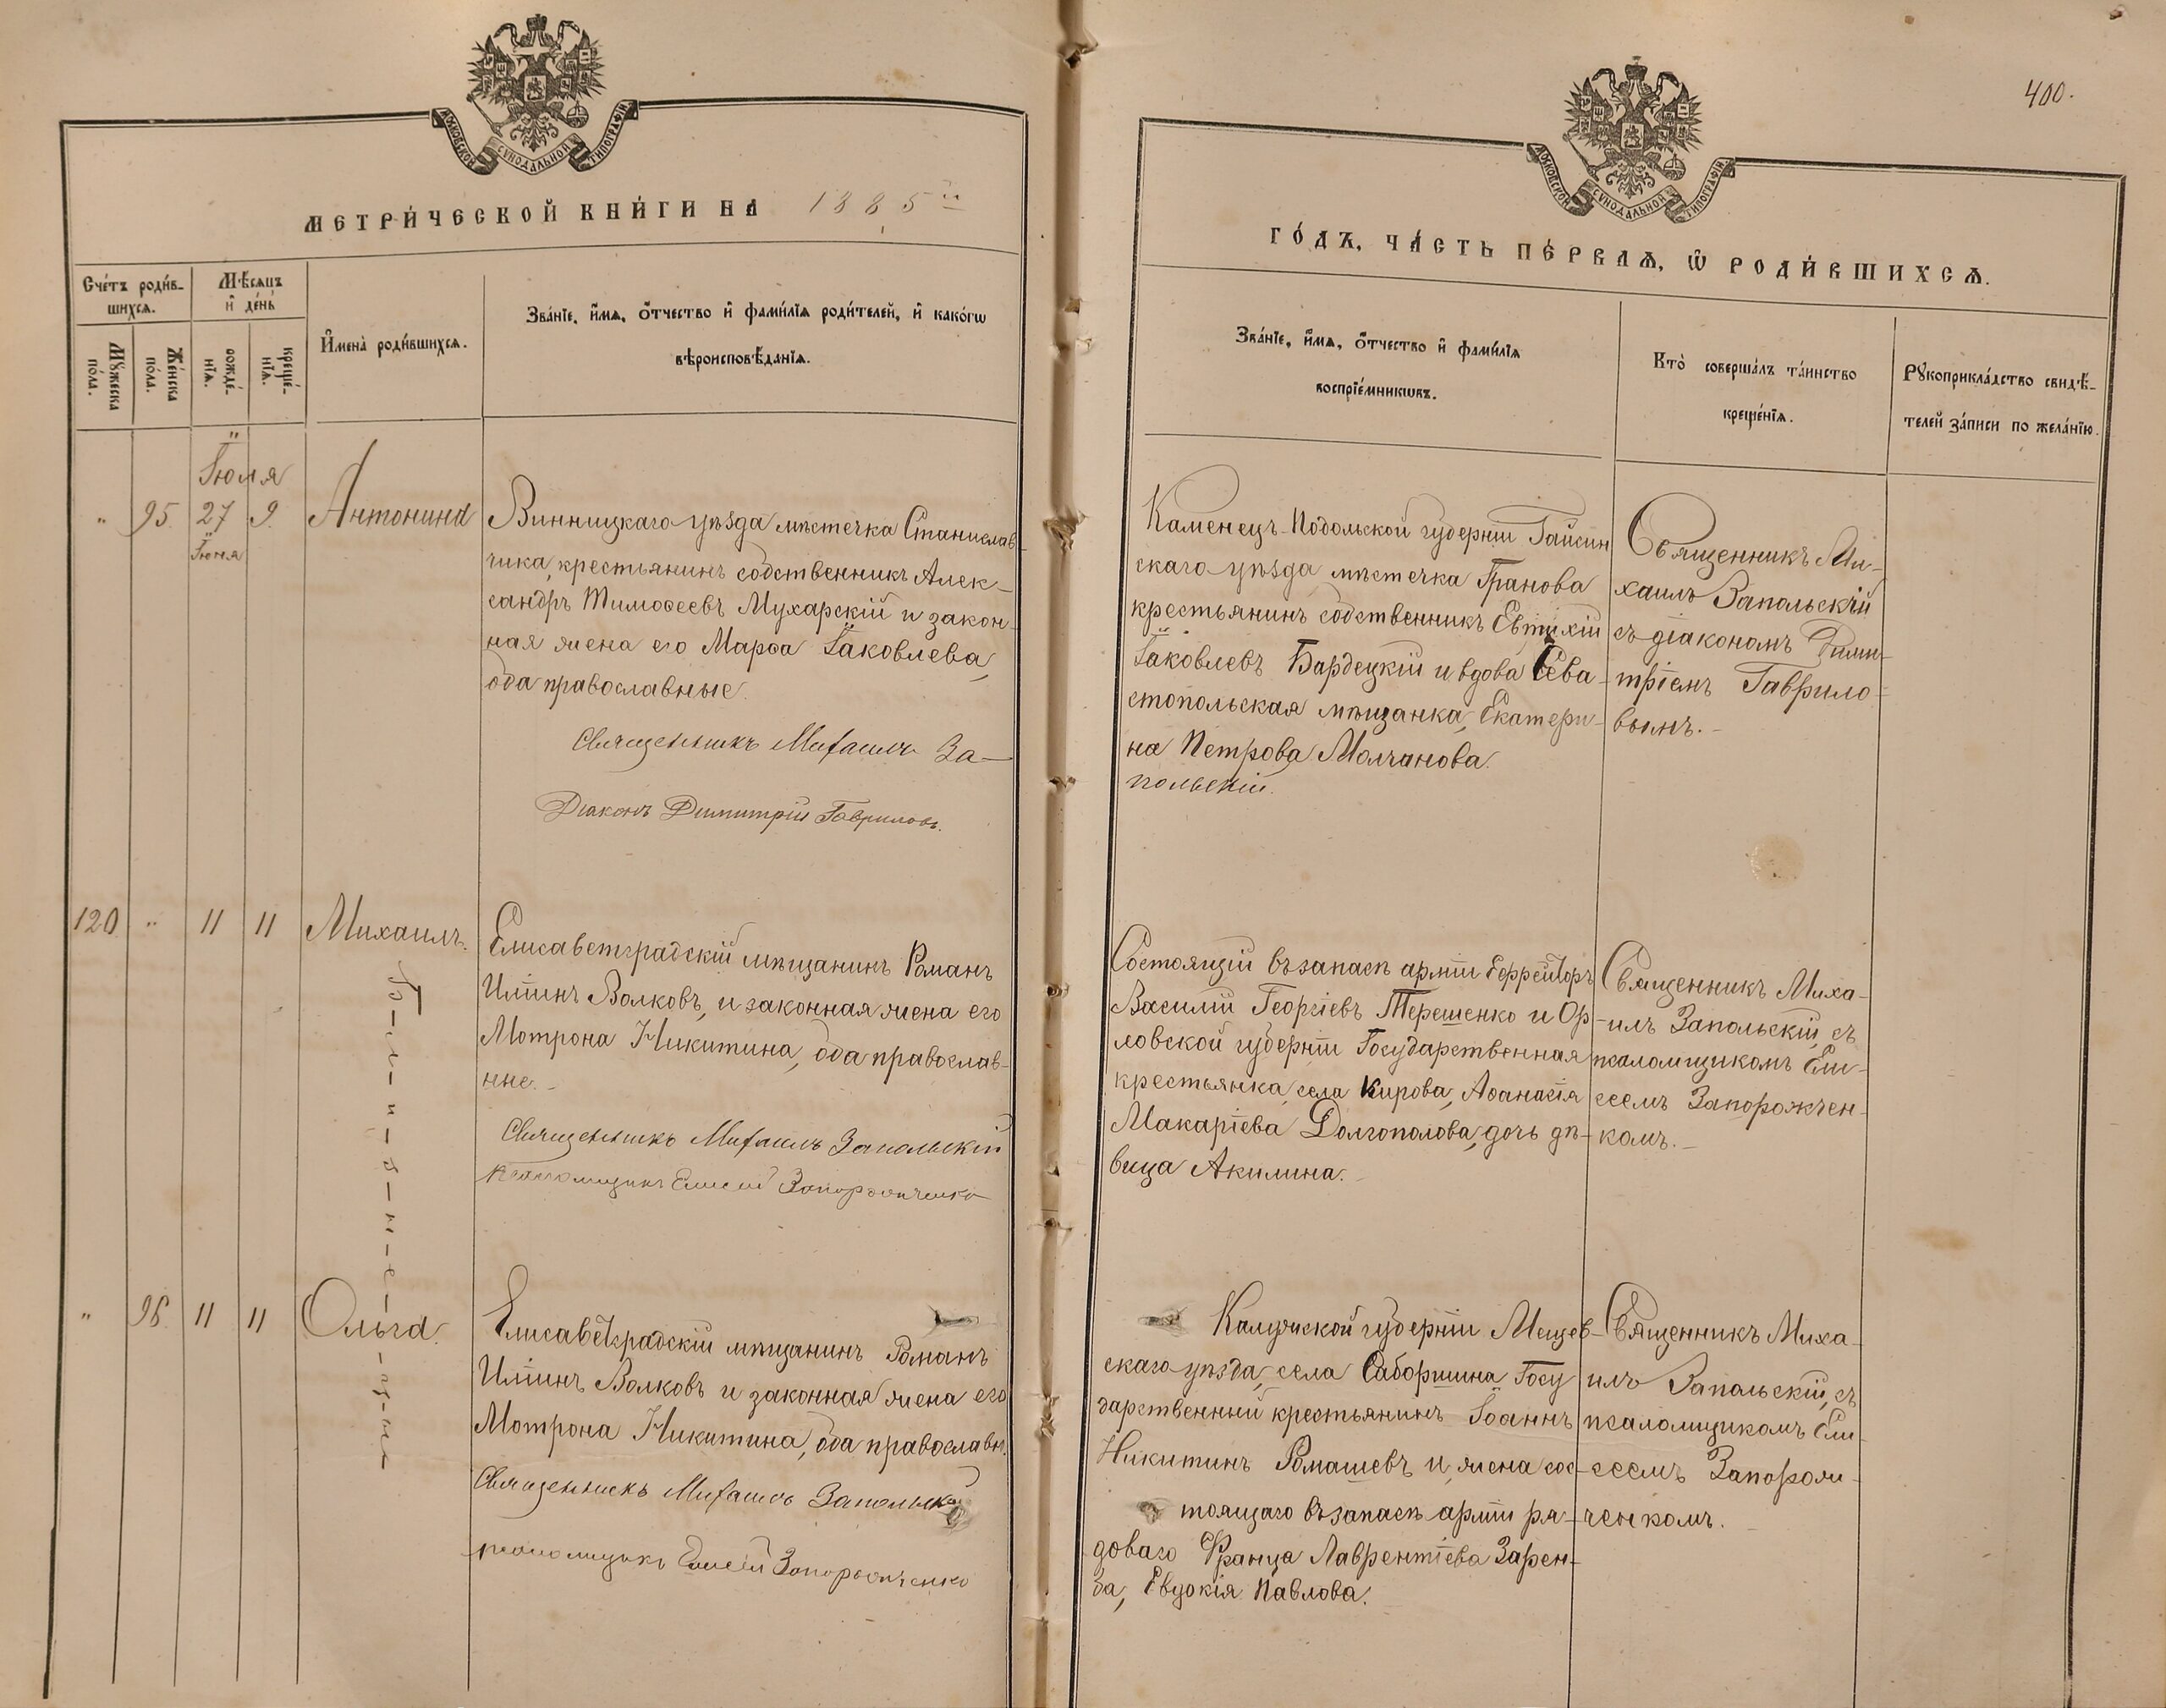 400.
МОСКОВСКОЙ СѴНОДАЛЬНОЙ ТИПОГРАФІИ
МОСКОВСКОЙ СѴНОДАЛЬНОЙ ТИПОГРАФІИ
МЕТРИ́ЧЕСКОЙ КНИ́ГИ НА 1885й
ГО́ДЪ, ЧА́СТЬ ПЕ́РВАѦ, Ѡ҆ РОДИ́ВШИХСѦ.
Сче́тъ роди́в-
шихсѧ.
Мꙋ́жеска
по́ла.
Же́нска
по́ла.
Мѣ́сѧцъ
и҆ де́нь
рожде́-
нїѧ.
креще́-
нїѧ.
И҆мена̀ роди́вшихсѧ.
Зва́нїе, и҆́мѧ, ѻ҆́тчество и҆ фами́лїѧ роди́телей, и҆ како́гѡ
вѣроисповѣ́данїѧ.
Зва́нїе, и҆́мѧ, ѻ҆́тчество и҆ фами́лїѧ
воспрїе́мникѡвъ.
Кто̀ соверша́лъ та́инство
креще́нїѧ.
Рꙋкоприкла́дство свидѣ́-
телей за́писи по жела́нїю.
Іюля
" 95. 27 9. Антонина
Іюня
Винницкаго уѣзда мѣстечка Станислав-
чика, крестьянинъ собственникъ Алек-
сандръ Тимоѳеевъ Мухарскій и закон-
ная жена его Марѳа Іаковлева,
оба православные.
Священникъ Михаилъ За-
Діаконъ Димитрій Гавриловъ.
Каменецъ-Подольской губерніи Гайсин
скаго уѣзда мѣстечка Гранова
крестьянинъ собственникъ Евтихій
Іаковлевъ Бардецкій и вдова Сева-
стопольская мѣщанка, Екатери-
на Петрова Молчанова.
польскій.
Священникъ Ми-
хаилъ Запольскій
съ діакономъ Дими-
тріемъ Гаврило-
вымъ.-
120 " 11 11 Михаилъ.
Б-л-и-з-н-е-ц-ы-
Елисаветградскій мѣщанинъ Романъ
Иліинъ Волковъ, и законная жена его
Мотрона Никитина, оба православ-
ные.-
Священникъ Михаилъ Запольскій
Псаломщикъ Елисей Запорожченко
Состоящій въ запасѣ арміи Ефрейторъ
Василій Георгіевъ Терешенко и Ор-
ловской губерніи Государственная
крестьянка, села Кирова, Аѳанасія
Макаріева Долгополова, дочь дѣ-
вица Акилина.-
Священникъ Миха-
илъ Запольскій, съ
псаломщикомъ Ели-
сеемъ Запорожчен-
комъ.-
" 96. 11 11 Ольга.
Елисаветградскій мѣщанинъ Романъ
Иліинъ Волковъ и законная жена его
Мотрона Никитина, оба православн.
Священникъ Михаилъ Запольскій
псаломщикъ Елисей Запорожченко
Калужской губерніи Мещев-
скаго уѣзда, села Саборшина Госу
дарственный крестьянинъ Іоаннъ
Никитинъ Ромашевъ и жена сос-
тоящаго въ запасѣ арміи ря-
доваго Франца Лаврентіева Зарем-
ба, Евдокія Павлова.
Священникъ Миха-
илъ Запольскій, съ
псаломщикомъ Ели-
сеемъ Запорож-
ченкомъ.